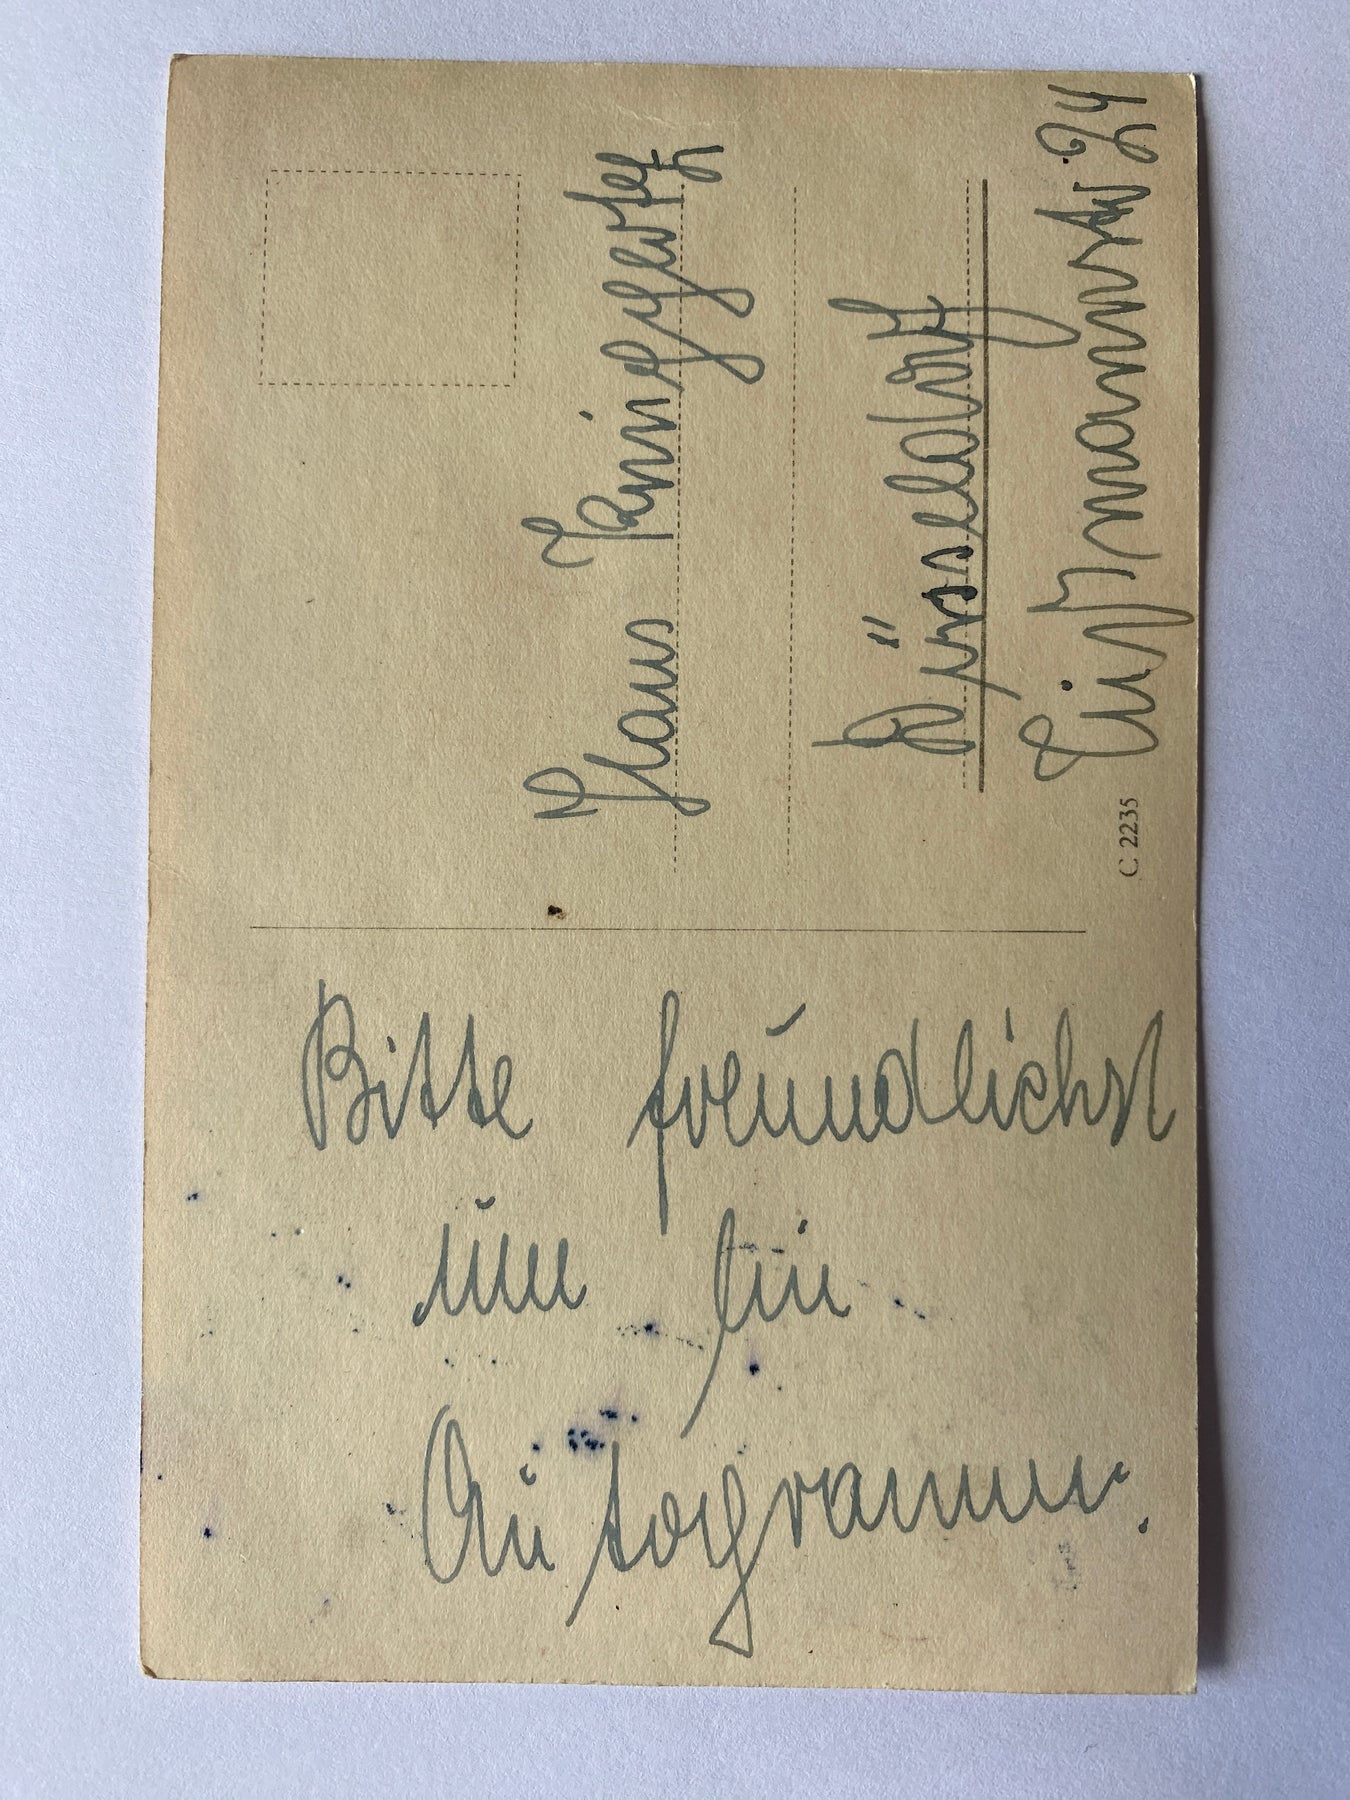 Bitte freundlichst
um ein
Autogramm.
Hans
Düsseldorf
Lützmannstr. 24
C 2235